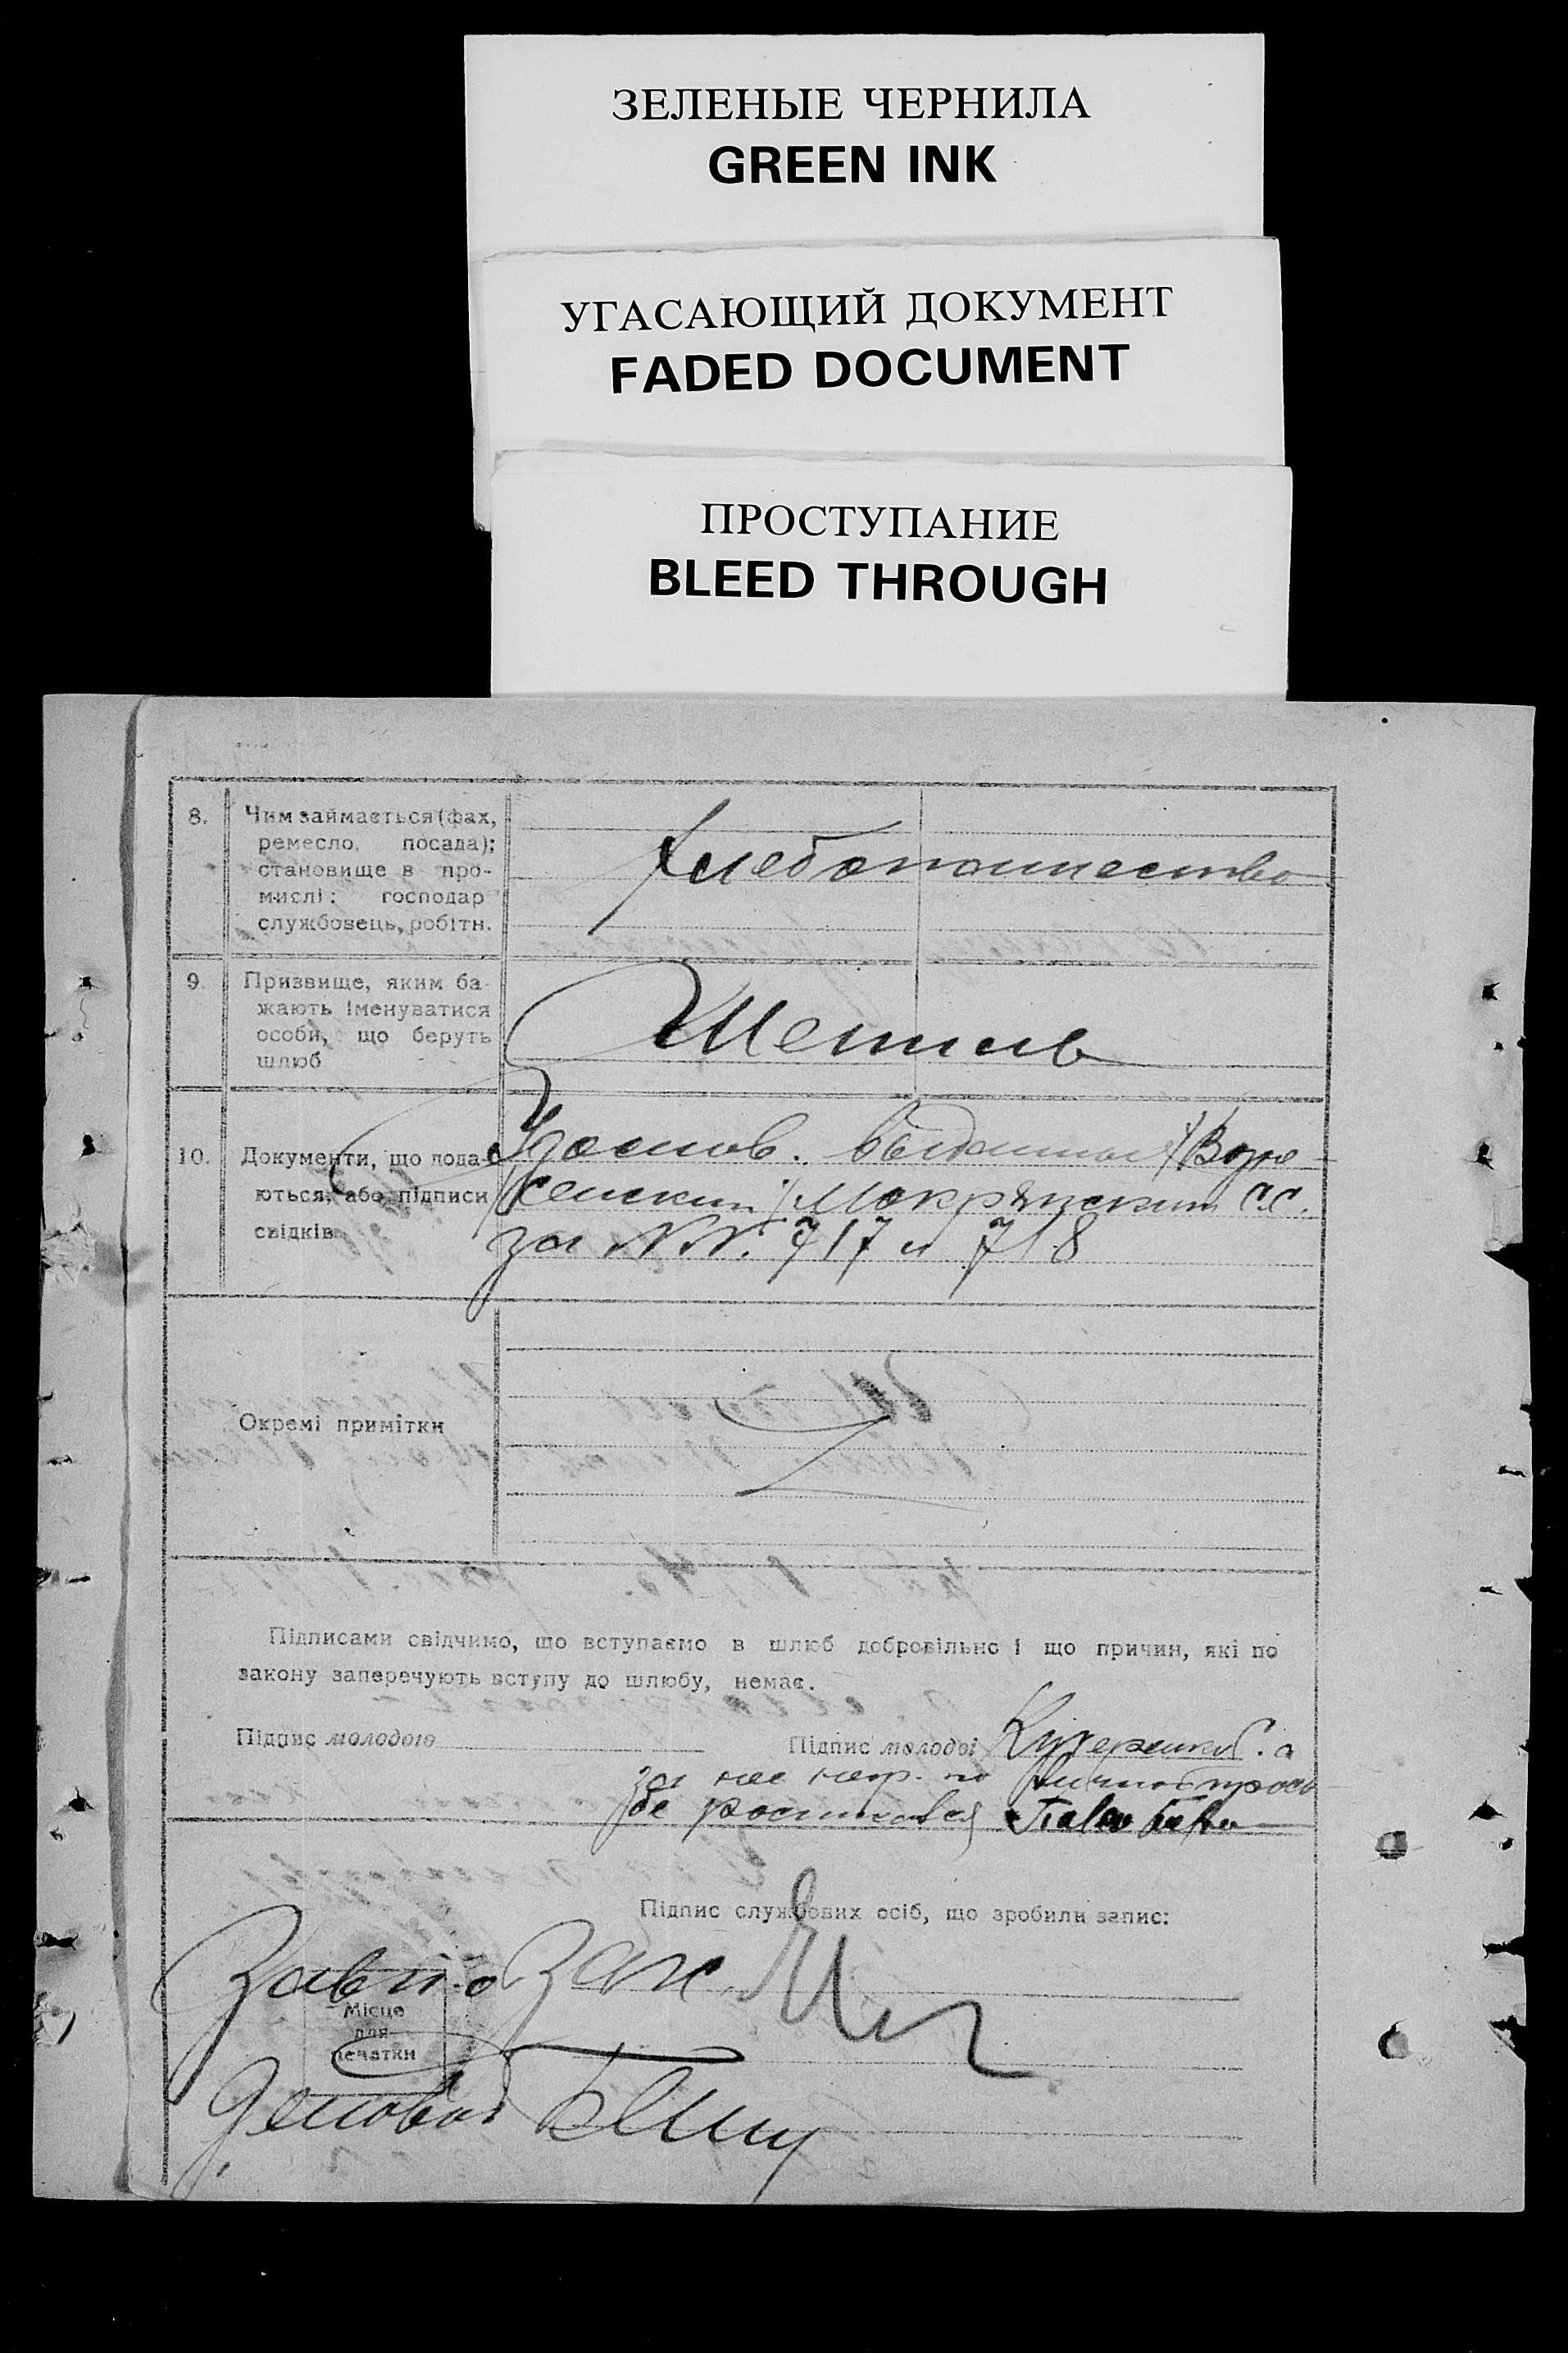 ЗЕЛЕНЫЕ ЧЕРНИЛА
GREEN INK
УГАСАЮЩИЙ ДОКУМЕНТ
FADED DOCUMENT
ПРОСТУПАНИЕ
BLEED THROUGH
8. Чим займається (фах,
ремесло, посада);
становище в про-
мислі: господар
службовець, робітн.
Хлебопашество
9. Призвище, яким ба-
жають іменуватися
особи, що беруть
шлюб
10. Документи, що пода-
ються, або підписи
свідків
Удостов.
с.с.
за №№. 717 и 718
Окремі примітки
Підписами свідчимо, що вступаємо в шлюб добровільно і що причин, які по
закону заперечують вступу до шлюбу, немає.
Підпис молодого
Підпис молодої
за нее негр. по личной прось
бе росписался
Підпис службових осіб, що зробили запис:
Зав.
Місце
для
печатки